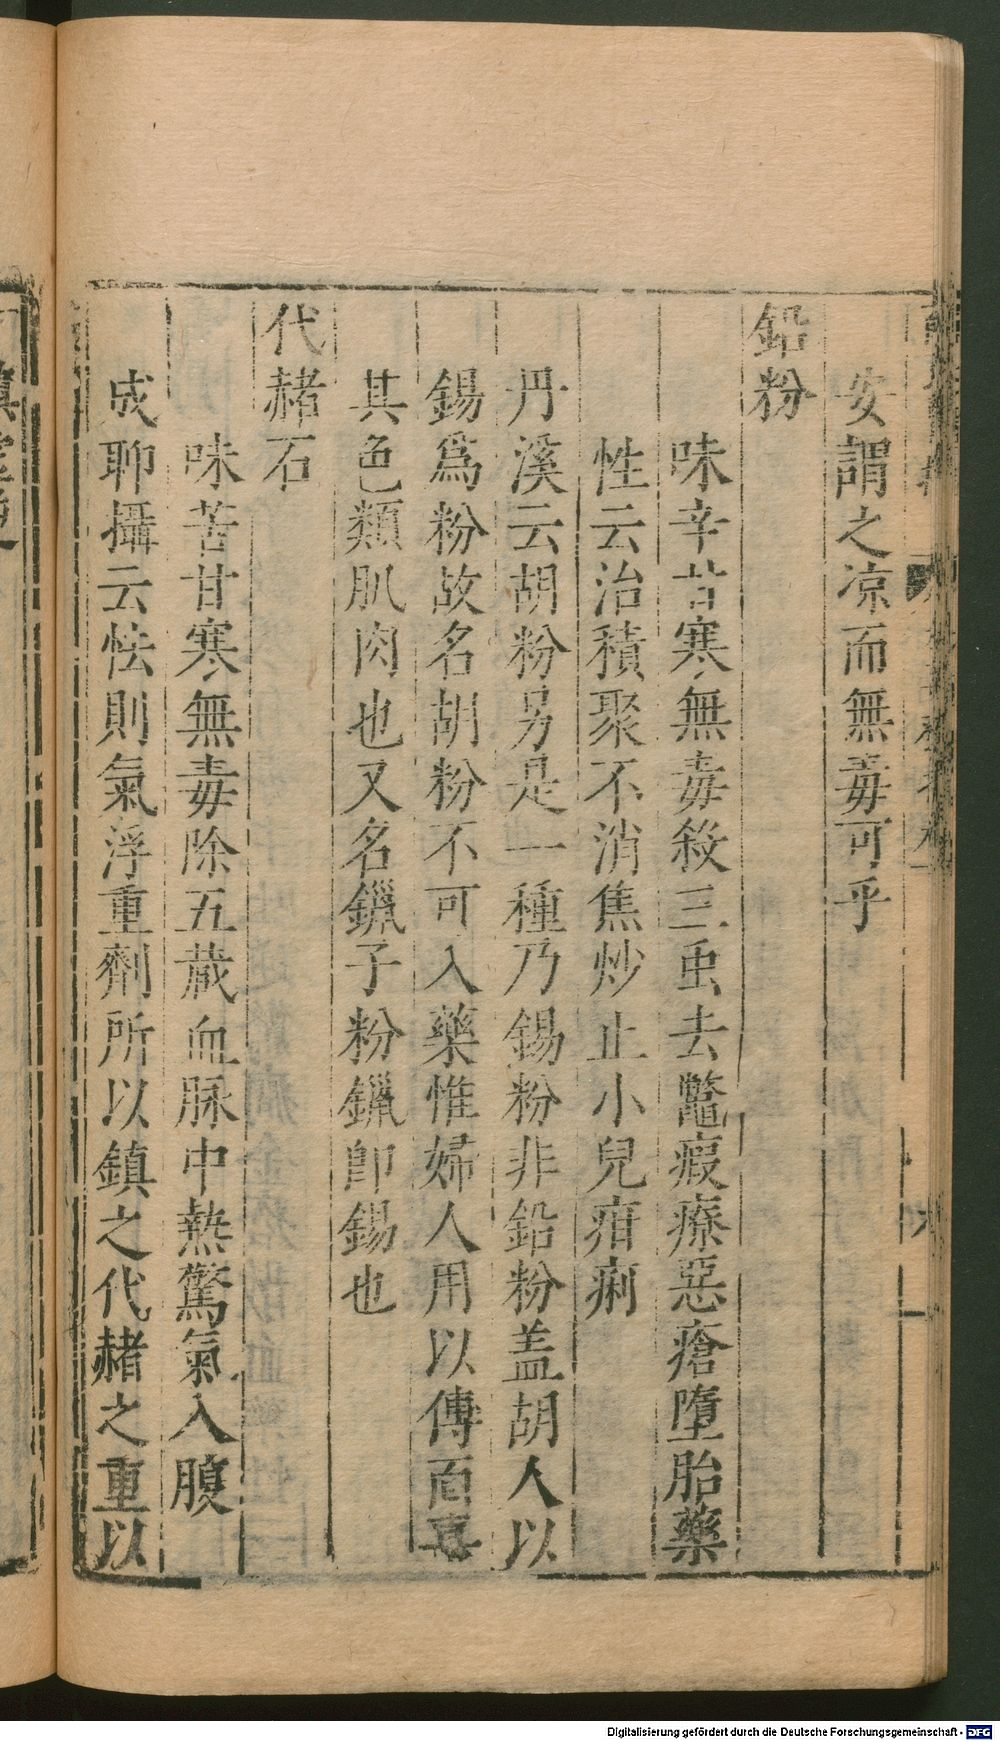 安謂之凉而無毒可乎
鉛粉
味辛甘寒無毒殺三虫去鼈瘕療惡瘡墮胎藥
性云治積聚不消焦炒止小兒疳痢
丹溪云胡粉另是一種乃錫粉非鉛粉盖胡人以
錫爲粉故名胡粉不可入藥惟婦人用以傳面喜
其色類肌肉也又名鑞子粉鑞即錫也
代赭石
味苦甘寒無毒除五藏血脉中熱驚氣入腹
成聊攝云怯則氣浮重劑所以鎮之代赭之重以
Digitalisierung gefördert durch die Deutsche Forschungsgemeinschaft - DFG